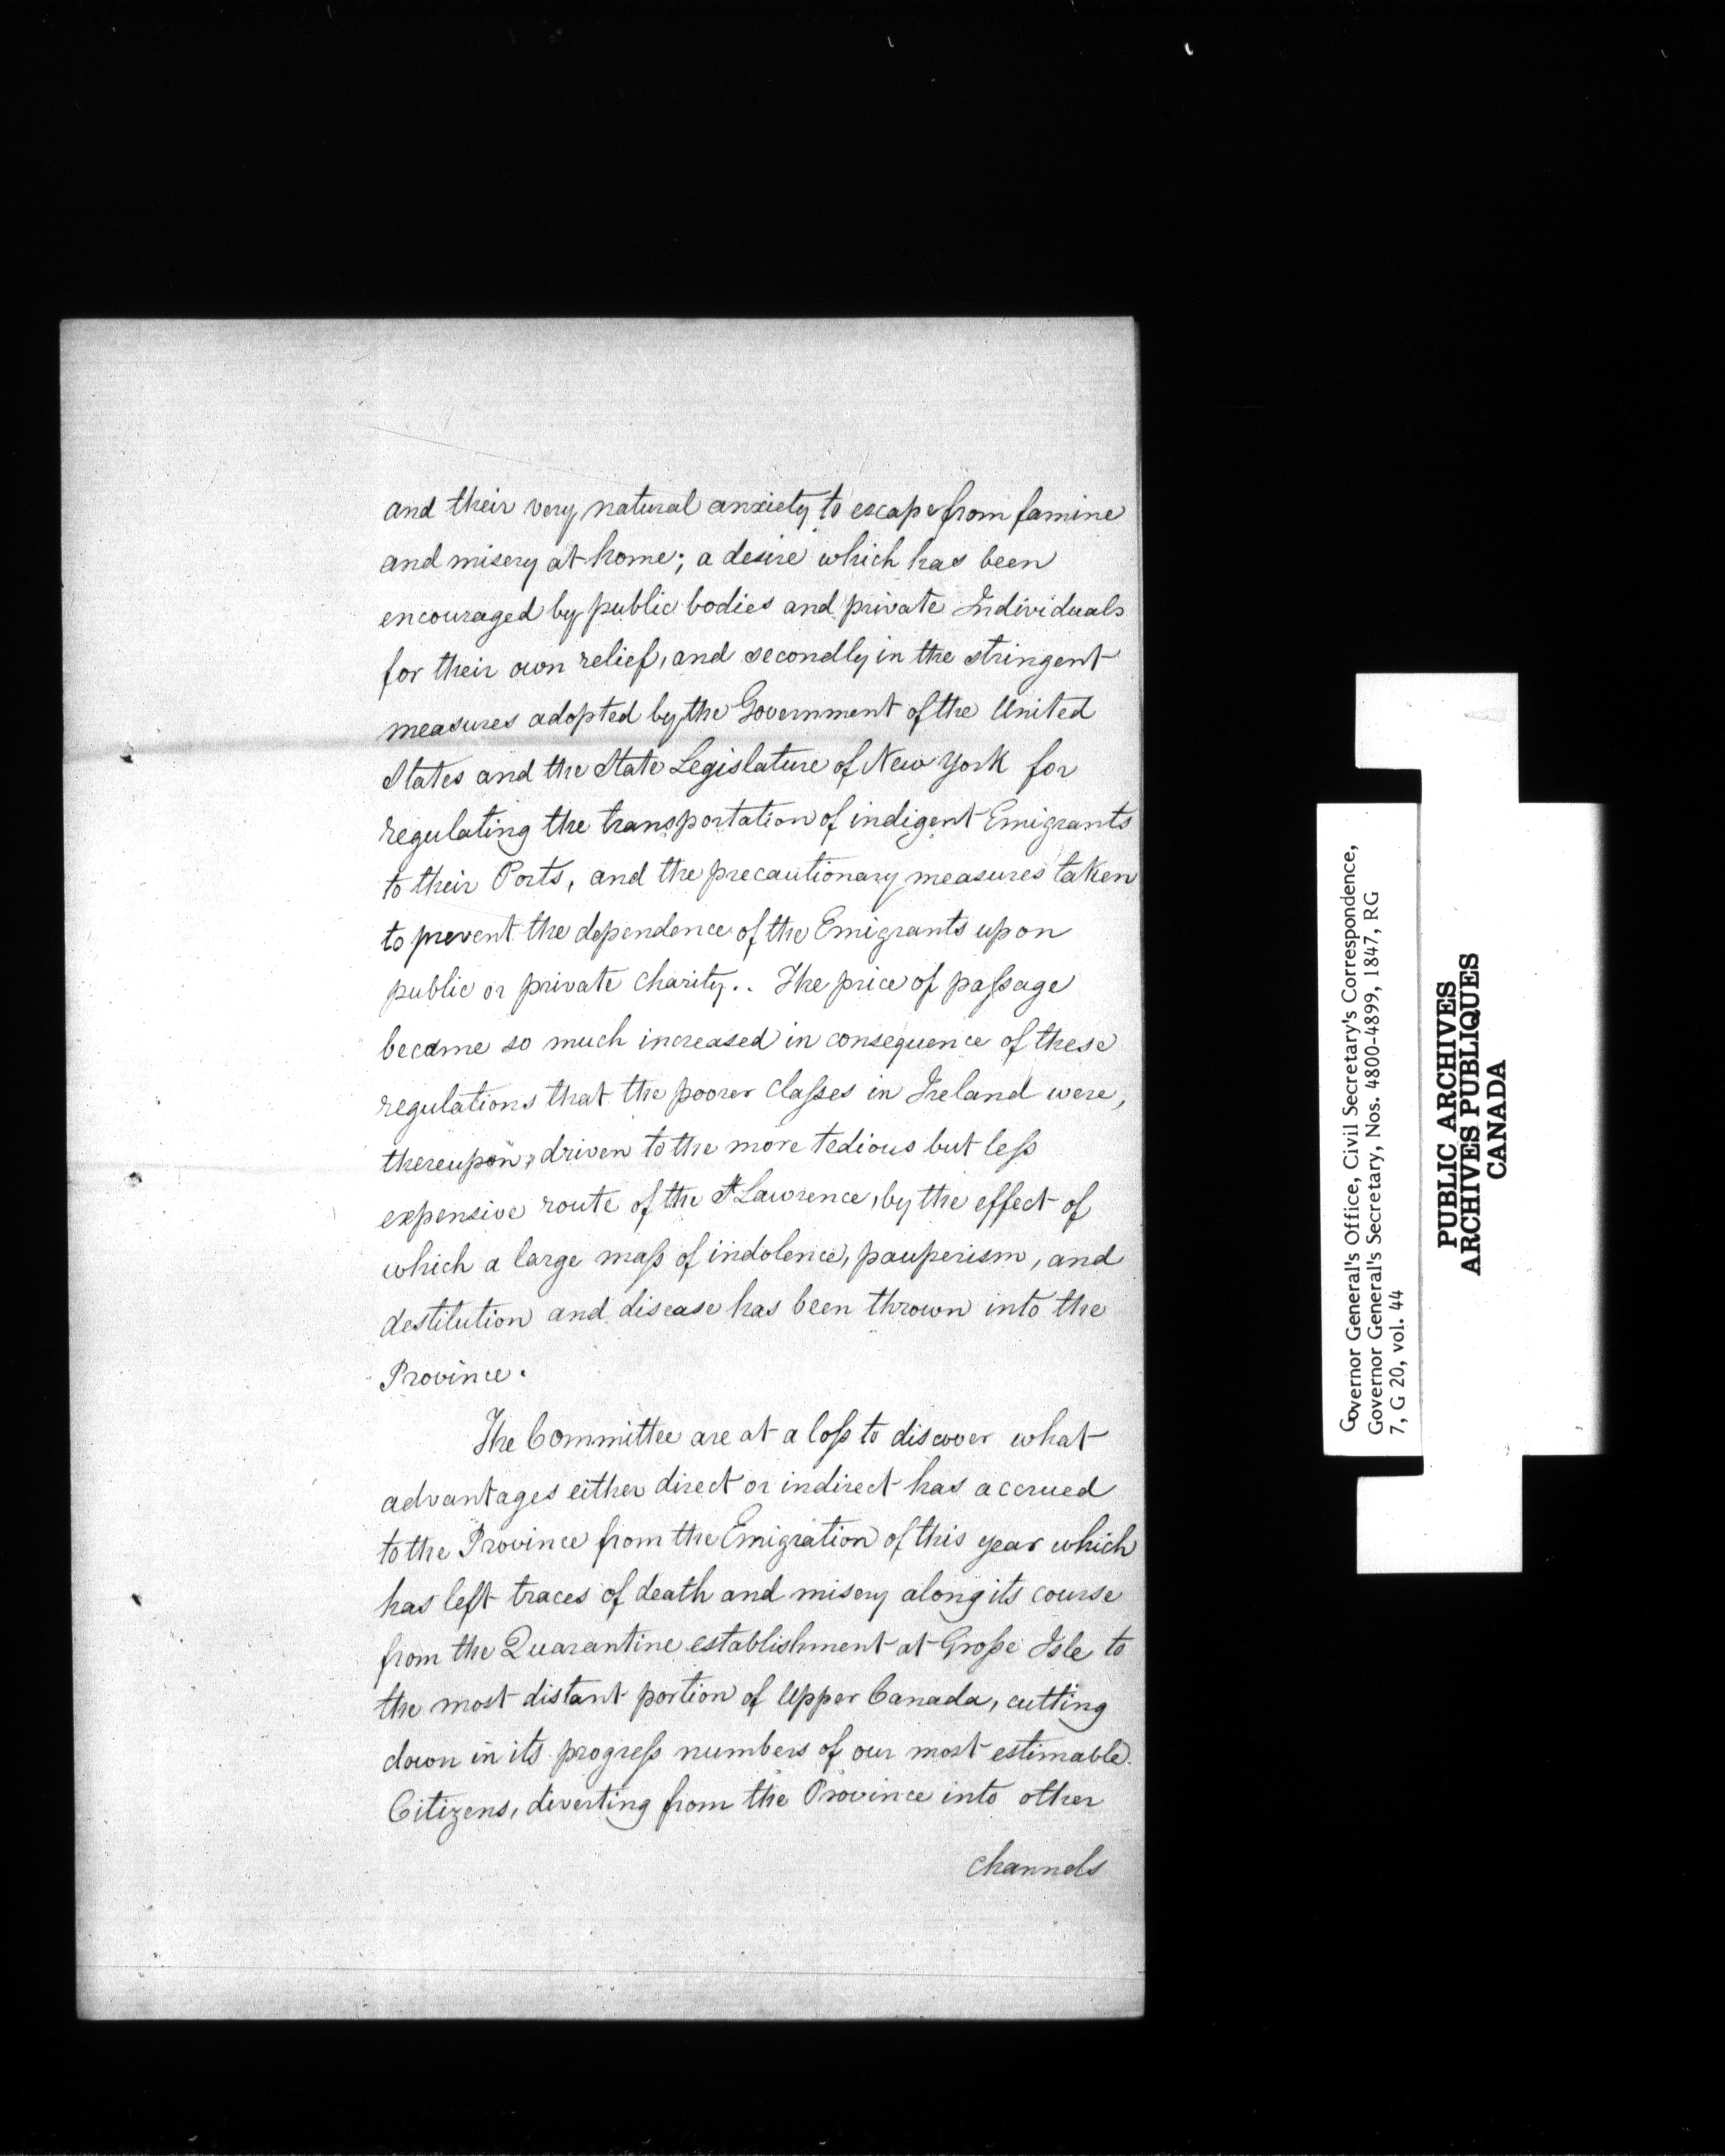 and their very natural anxiety to escape from famine
and misery at home; a desire which has been
encouraged by public bodies and private Individuals
for their own relief, and secondly in the stringent
measures adopted by the Government of the United
States and the State Legislature of New York for
regulating the transportation of indigent Emigrants
to their Ports, and the precautionary measures taken
to prevent the dependence of the Emigrants upon
public or private charity.. The price of paſsage
became so much increased in consequence of these
regulations that the poorer claſses in Ireland were,
thereupon, driven to the more tedious but leſs
expensive route of the St Lawrence, by the effect of
which a large maſs of indolence, pauperism, and
destitution and disease has been thrown into the
Province.
The Committee are at a loſs to discover what
advantages either direct or indirect has accrued
to the Province from the Emigration of this year which
has left traces of death and misery along its course
from the Quarantine establishment at Groſse Isle to
the most distant portion of Upper Canada, cutting
down in its progreſs numbers of our most estimable
Citizens, diverting from the Province into other
channels
Governor General's Office, Civil Secretary's Correspondence,
Governor General's Secretary, Nos. 4800-4899, 1847, RG
7, G 20, vol. 44
PUBLIC ARCHIVES
ARCHIVES PUBLIQUES
CANADA